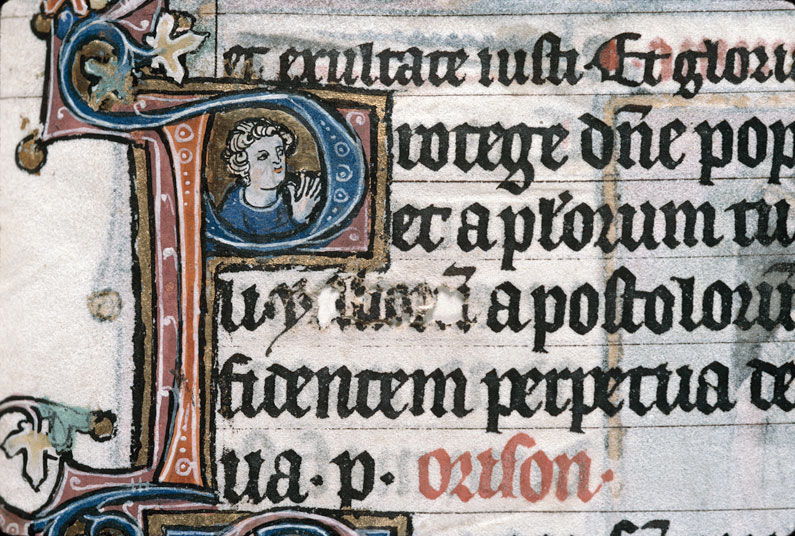 et exultate iusti. Et gloria
Protege dn̄e pop
et apl̓orum tu
u. y apostoloruꝫ
fidentem perpetua de
ua. p. orison.